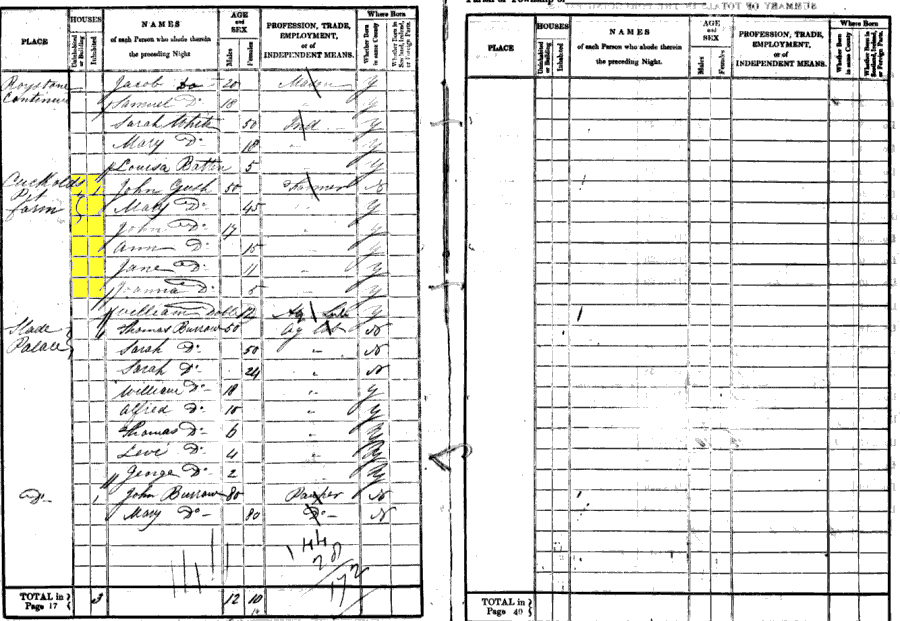 PLACE
HOUSES
Uninhabited or Building
Inhabited
NAMES
of each Person who abode therein
the preceding Night
AGE
and
SEX
Males
Females
PROFESSION, TRADE,
EMPLOYMENT,
or of
INDEPENDENT MEANS.
Where Born
Whether Born in same County
Whether Born in Scotland, Ireland, or Foreign Parts.
Roystone Jacob Do 20 Mason Y
Continued Samuel Do 18 Y
Sarah White 50 Ind Y
Mary Do 18 Y
Louisa Batten 5 Y
Cuckolds 1 John Gush 50 Farmer N
Pit Mary Do 45 Y
Farm John Do 14 Y
Ann Do 15 Y
Jane Do 11 Y
Joanna Do 5 Y
William 12 Ag Y
Slade 1 Thomas Burrow 50 Ag Lab N
Palace Sarah Do 50 " N
Sarah Do 24 " N
William Do 18 " Y
Alfred Do 10 " Y
Thomas Do 6 " Y
Levi Do 4 " Y
George Do 2 Y
Do 1 John Burrow 80 Pauper N
Mary Do 80 Do N
144
28
172
TOTAL in
Page 17
3 12 10
SUMMARY OF TOTALS IN
Parish or Township of
PLACE
HOUSES
Uninhabited or Building
Inhabited
NAMES
of each Person who abode therein
the preceding Night.
AGE
and
SEX
Males
Females
PROFESSION, TRADE,
EMPLOYMENT,
or of
INDEPENDENT MEANS.
Where Born
Whether Born in same County
Whether Born in Scotland, Ireland, or Foreign Parts.
TOTAL in
Page 40